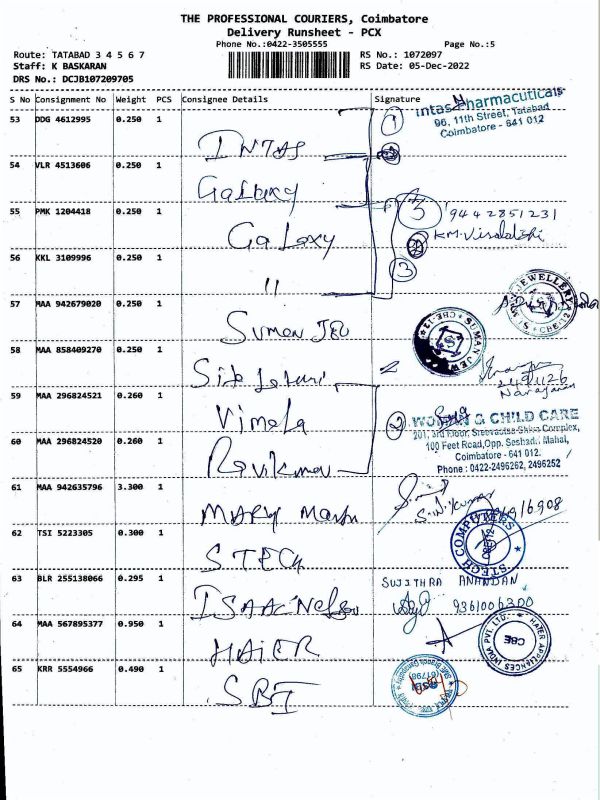 THE PROFESSIONAL COURIERS, Coimbatore
Delivery Runsheet - PCX
Phone No.:0422-3505555 Page No.:5
Route: TATABAD 3 4 5 6 7 RS No.: 1072097
Staff: K BASKARAN RS Date: 05-Dec-2022
DRS No.: DCJB107209705
S No Consignment No Weight PCS Consignee Details Signature
53 DDG 4612995 0.250 1 INTAS ① Intas Pharmacuticals
96, 11th Street, Tatabad
Coimbatore - 641 012
54 VLR 4513606 0.250 1 Galaxy
55 PMK 1204418 0.250 1 Galaxy ③ 9442851231
56 KKL 3109996 0.250 1 11 ③
57 MAA 942679020 0.250 1 Suman Jew SUMAN JEW CBE-12
58 MAA 858409270 0.250 1
Narayanan
59 MAA 296824521 0.260 1 Vimala ② WOMAN & CHILD CARE
201, 3rd Floor, Complex,
100 Feet Road,Opp. Seshadri Mahal,
Coimbatore - 641 012.
Phone : 0422-2496262, 2496252
60 MAA 296824520 0.260 1 Ravikumar
61 MAA 942635796 3.300 1 MARY
62 TSI 5223305 0.300 1 STECH STECH COMPUTERS CBE-12
63 BLR 255138066 0.295 1 ISAAC Nelson SUJITHRA ANANDAN
9361006300
64 MAA 567895377 0.950 1 HAIER HAIER APPLIANCES INDIA PVT. LTD. CBE
65 KRR 5554966 0.490 1 SBI